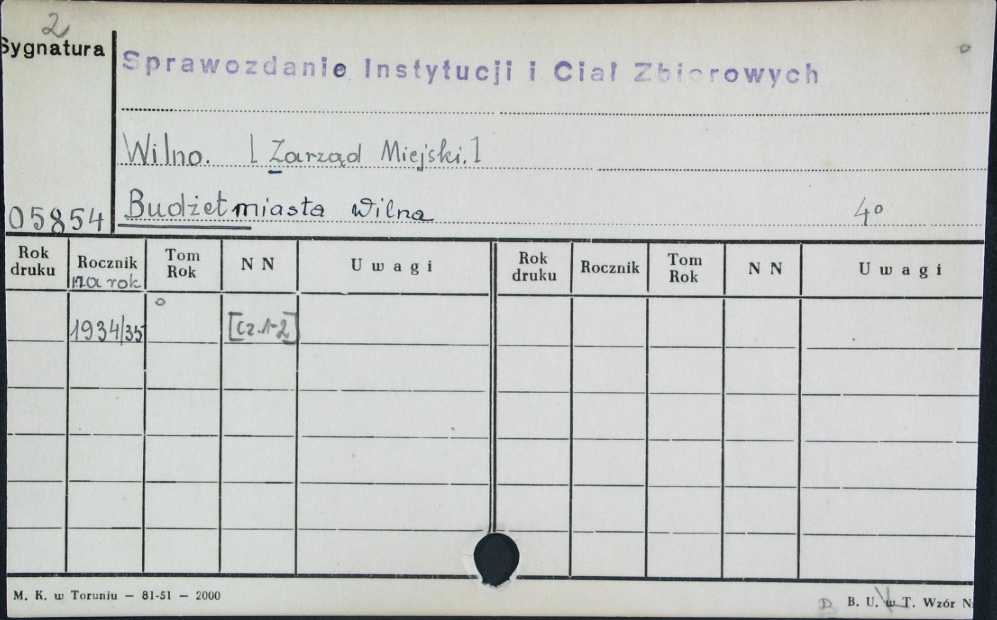 2
Sygnatura
Sprawozdanie Instytucji i Ciał Zbiorowych
Wilno. [Zarząd Miejski.]
05854
Budżet miasta Wilna 4°
Rok druku Rocznik na rok Tom Rok N N Uwagi Rok druku Rocznik Tom Rok N N Uwagi
1934/35 [cz.1-2]
M. K. w Toruniu — 81-51 — 2000
D B. U. w T. Wzór N